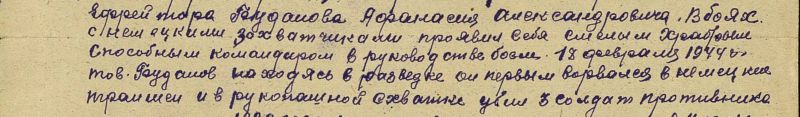 Ефрейтора Буданова Афанасия Александровича. В боях
с немецкими захватчиками проявил себя смелым Храбрым
способным командиром в руководстве боем. 18 февраля 1944 г
тов. Буданов находясь в разведке он первым ворвался в немецкие
траншеи и в рукопашной схватке убил 3 солдат противника